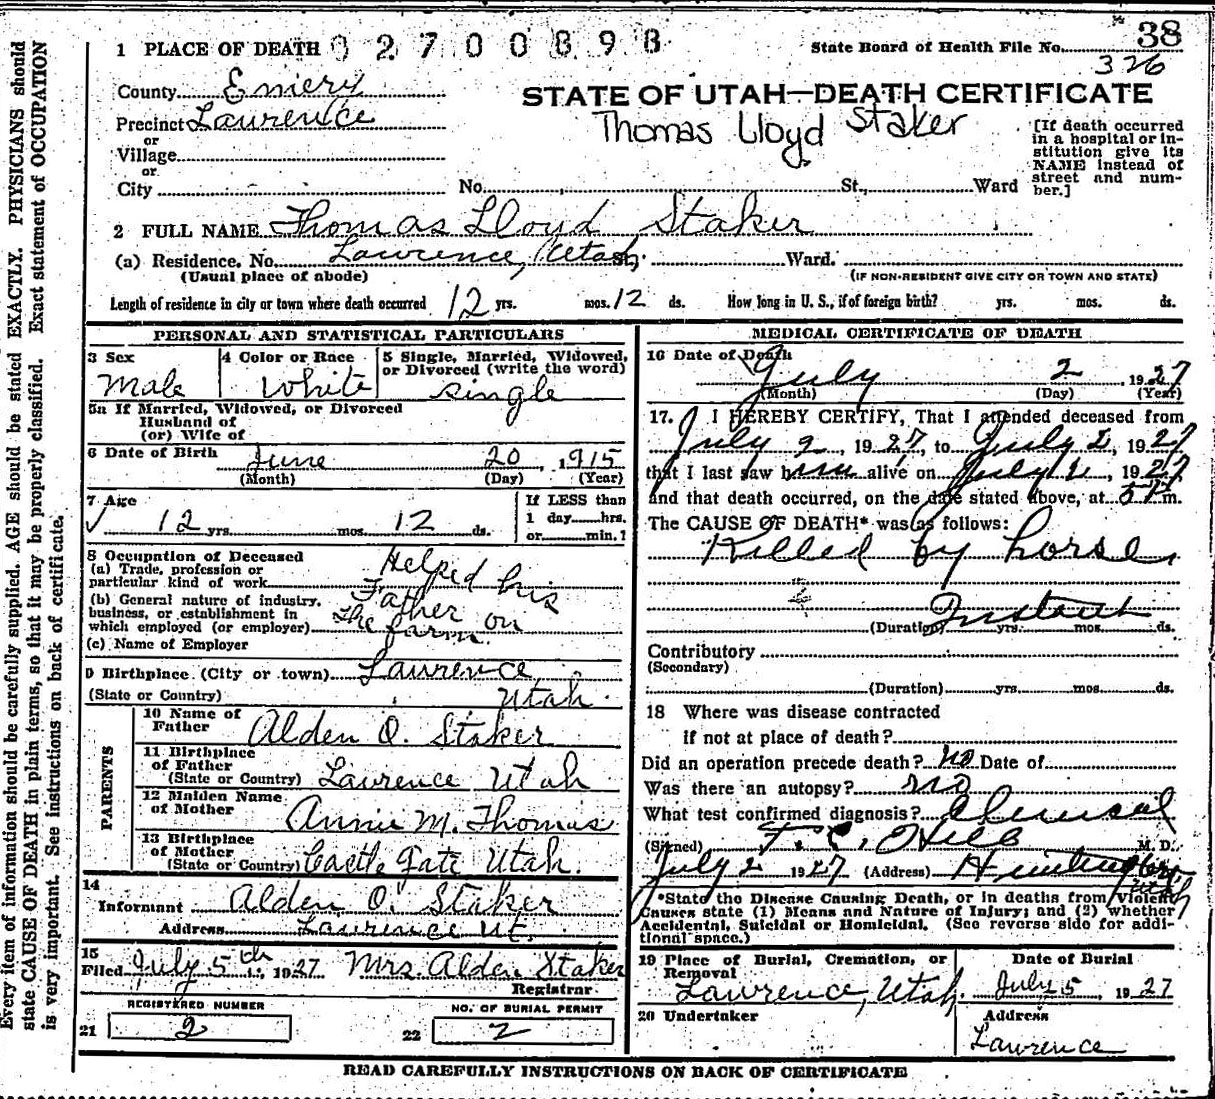 38
1 PLACE OF DEATH 02700898 State Board of Health File No.
326
County Emery
STATE OF UTAH—DEATH CERTIFICATE
Precinct Lawrence
Thomas Lloyd Staker
or
Village
or
City No. St., Ward
[If death occurred
in a hospital or in-
stitution give its
NAME instead of
street and num-
ber.]
2 FULL NAME Thomas Lloyd Staker
(a) Residence. No. Lawrence, Utah St. Ward.
(Usual place of abode) (IF NON-RESIDENT GIVE CITY OR TOWN AND STATE)
Length of residence in city or town where death occurred 12 yrs. mos. 12 ds. How long in U. S., if of foreign birth? yrs. mos. ds.
PERSONAL AND STATISTICAL PARTICULARS
3 Sex
Male
4 Color or Race
White
5 Single, Married, Widowed,
or Divorced (write the word)
single
5a If Married, Widowed, or Divorced
Husband of
(or) Wife of
6 Date of Birth June 20, 1915
(Month) (Day) (Year)
7 Age
12 yrs. mos. 12 ds.
If LESS than
1 day hrs.
or min.?
8 Occupation of Deceased
(a) Trade, profession or
particular kind of work
(b) General nature of industry,
business, or establishment in
which employed (or employer)
Helped his
Father on
the farm.
(c) Name of Employer
9 Birthplace (City or town) Lawrence
(State or Country) Utah.
PARENTS
10 Name of
Father Alden O. Staker
11 Birthplace
of Father
(State or Country) Lawrence Utah
12 Maiden Name
of Mother Annie M. Thomas
13 Birthplace
of Mother
(State or Country) Castle Gate Utah.
14
Informant Alden O. Staker
Address Lawrence Ut.
15
Filed July 5th, 1927 Mrs Alden Staker
Registrar
REGISTERED NUMBER
21 2
NO. OF BURIAL PERMIT
22 2
MEDICAL CERTIFICATE OF DEATH
16 Date of Death
July 2, 1927
(Month) (Day) (Year)
17. I HEREBY CERTIFY, That I attended deceased from
July 2, 1927, to July 2, 1927
that I last saw him alive on July 2, 1927
and that death occurred, on the date stated above, at 5 P m.
The CAUSE OF DEATH* was as follows:
Killed by horse
Instant
(Duration) yrs. mos. ds.
Contributory
(Secondary)
(Duration) yrs. mos. ds.
18 Where was disease contracted
if not at place of death?
Did an operation precede death? no Date of
Was there an autopsy? no
What test confirmed diagnosis? Clinical
(Signed) T. C. Hill M. D.
July 2 1927 (Address) Huntington
Utah
*State the Disease Causing Death, or in deaths from Violent
Causes state (1) Means and Nature of Injury; and (2) whether
Accidental, Suicidal or Homicidal. (See reverse side for addi-
tional space.)
19 Place of Burial, Cremation, or
Removal
Lawrence, Utah.
Date of Burial
July 5, 1927
20 Undertaker
Address
Lawrence
READ CAREFULLY INSTRUCTIONS ON BACK OF CERTIFICATE
Every item of information should be carefully supplied. AGE should be stated EXACTLY. PHYSICIANS should
state CAUSE OF DEATH in plain terms, so that it may be properly classified. Exact statement of OCCUPATION
is very important. See instructions on back of certificate.